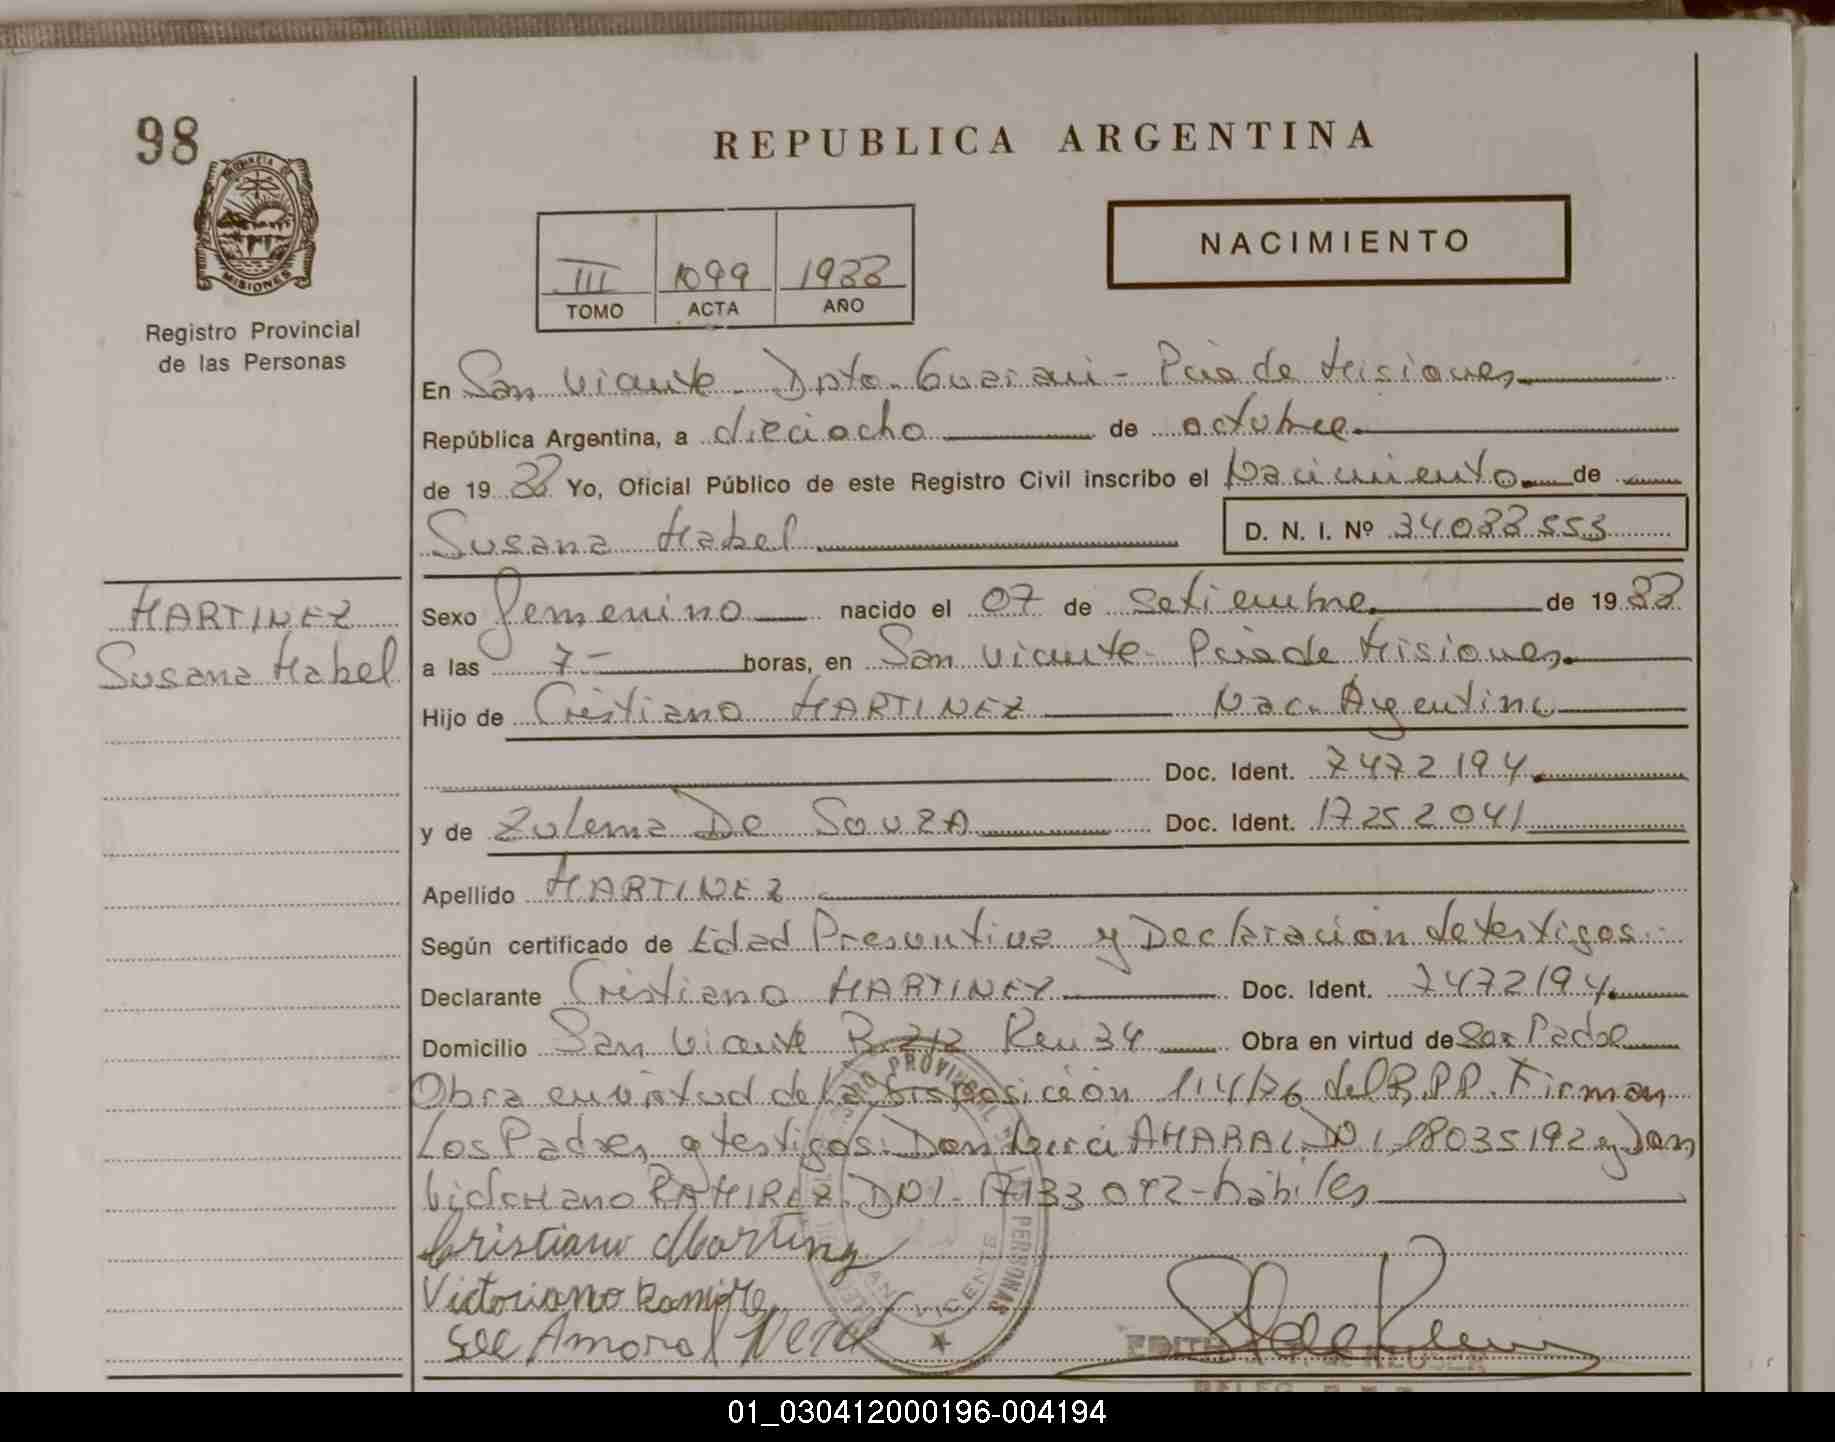 98
REPUBLICA ARGENTINA
PROVINCIA
MISIONES
Registro Provincial
de las Personas
III 1099 1988
TOMO ACTA AÑO
NACIMIENTO
En San Vicente - Dpto. Guarani - Pcia de Misiones
República Argentina, a dieciocho de octubre
de 19 88 Yo, Oficial Público de este Registro Civil inscribo el Nacimiento de
Susana Mabel D. N. I. Nº 34088553
MARTINEZ
Susana Mabel
Sexo femenino nacido el 07 de setiembre de 19 88
a las 7 - horas, en San Vicente - Pcia de Misiones
Hijo de Cristiano MARTINEZ Nac. Argentino
Doc. Ident. 7472194
y de Zulema De SouZA Doc. Ident. 17252041
Apellido MARTINEZ
Según certificado de Edad Presuntiva y Declaración de testigos
Declarante Cristiano MARTINEZ Doc. Ident. 7472194
Domicilio San Vicente Obra en virtud de Ser Padre
Obra en virtud de la Disposición 114/76 del R.P.P. Firman
Los Padres y testigos: Don AMARAL DNI 18035192 y Don
RAMIREZ DNI - hábiles
Cristiano Martinez
Victoriano Ramire
Amaral
SAN VICENTE
01_030412000196-004194